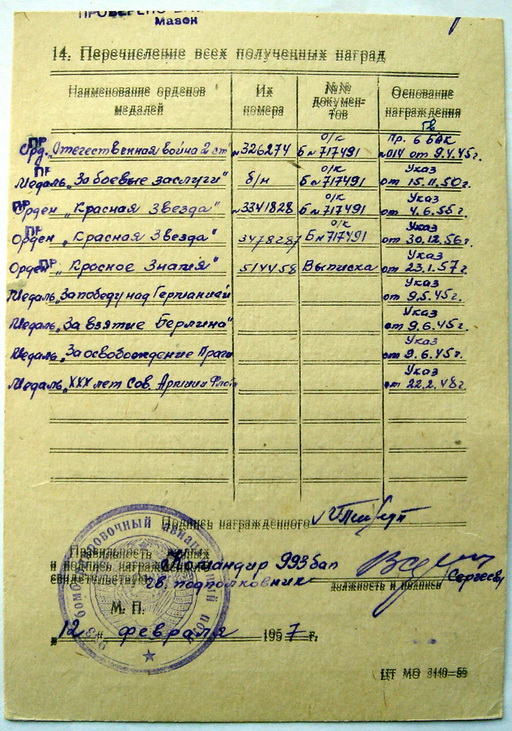 ПРОВЕРЕНО
Мазен
14. Перечисление всех полученных наград
Наименование орденов медалей
Их номера
№№ документов
Основание награждения
ПР Орд. „Отечественная война 2 ст №326274 о/к Б №717491 Пр. 6 БАК №014 от 9.4.45г.
ПР Медаль „За боевые заслуги" б/н о/к Б №717491 Указ от 15.11.50г.
ПР Орден „Красная Звезда" №3341828 о/к Б №717491 Указ от 4.6.55г.
ПР Орден „Красная Звезда" 3478287 о/к Б №717491 Указ от 30.12.56г.
ПР Орден „Красное Знамя" 514458 Выписка Указ от 23.1.57г.
Медаль „За победу над Германией Указ от 9.5.45г.
Медаль „За взятие Берлина" Указ от 9.6.45г.
Медаль „За освобождение Праги Указ от 9.6.45г.
Медаль „XXX лет Сов. Армии Указ от 22.2.48г.
Подпись награжденного
Правильность данных
и подпись награжденного
свидетельствую
Командир 993 бап
гв. подполковник
Сергеев
должность и подпись
М. П.
„12" февраля 1957 г.
ЦТ МО 3140—55